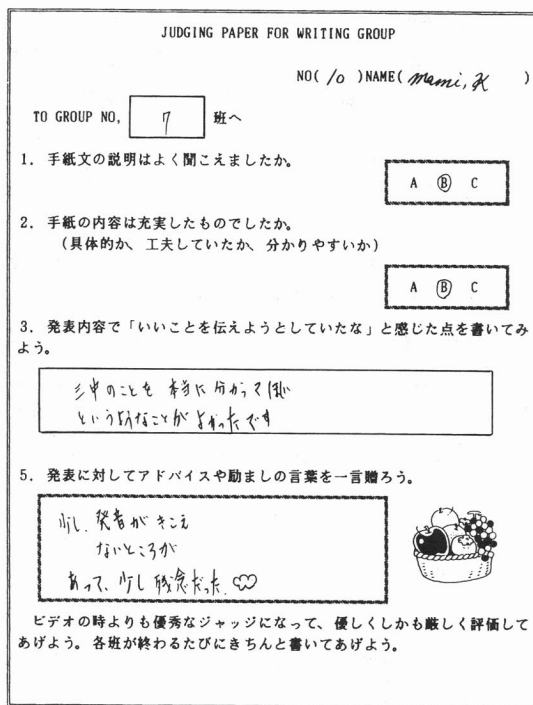 JUDGING PAPER FOR WRITING GROUP
NO( 10 )NAME( mami, K )
TO GROUP NO, 7 班へ
1. 手紙文の説明はよく聞こえましたか。
A B C
2. 手紙の内容は充実したものでしたか。
(具体的か、工夫していたか、分かりやすいか)
A B C
3. 発表内容で「いいことを伝えようとしていたな」と感じた点を書いてみ
よう。
三中のことを 本当に分かってほしい
というようなことがよかったです
5. 発表に対してアドバイスや励ましの言葉を一言贈ろう。
少し、発音がきこえ
ないところが
あって、少し残念だった。
ビデオの時よりも優秀なジャッジになって、優しくしかも厳しく評価して
あげよう。各班が終わるたびにきちんと書いてあげよう。